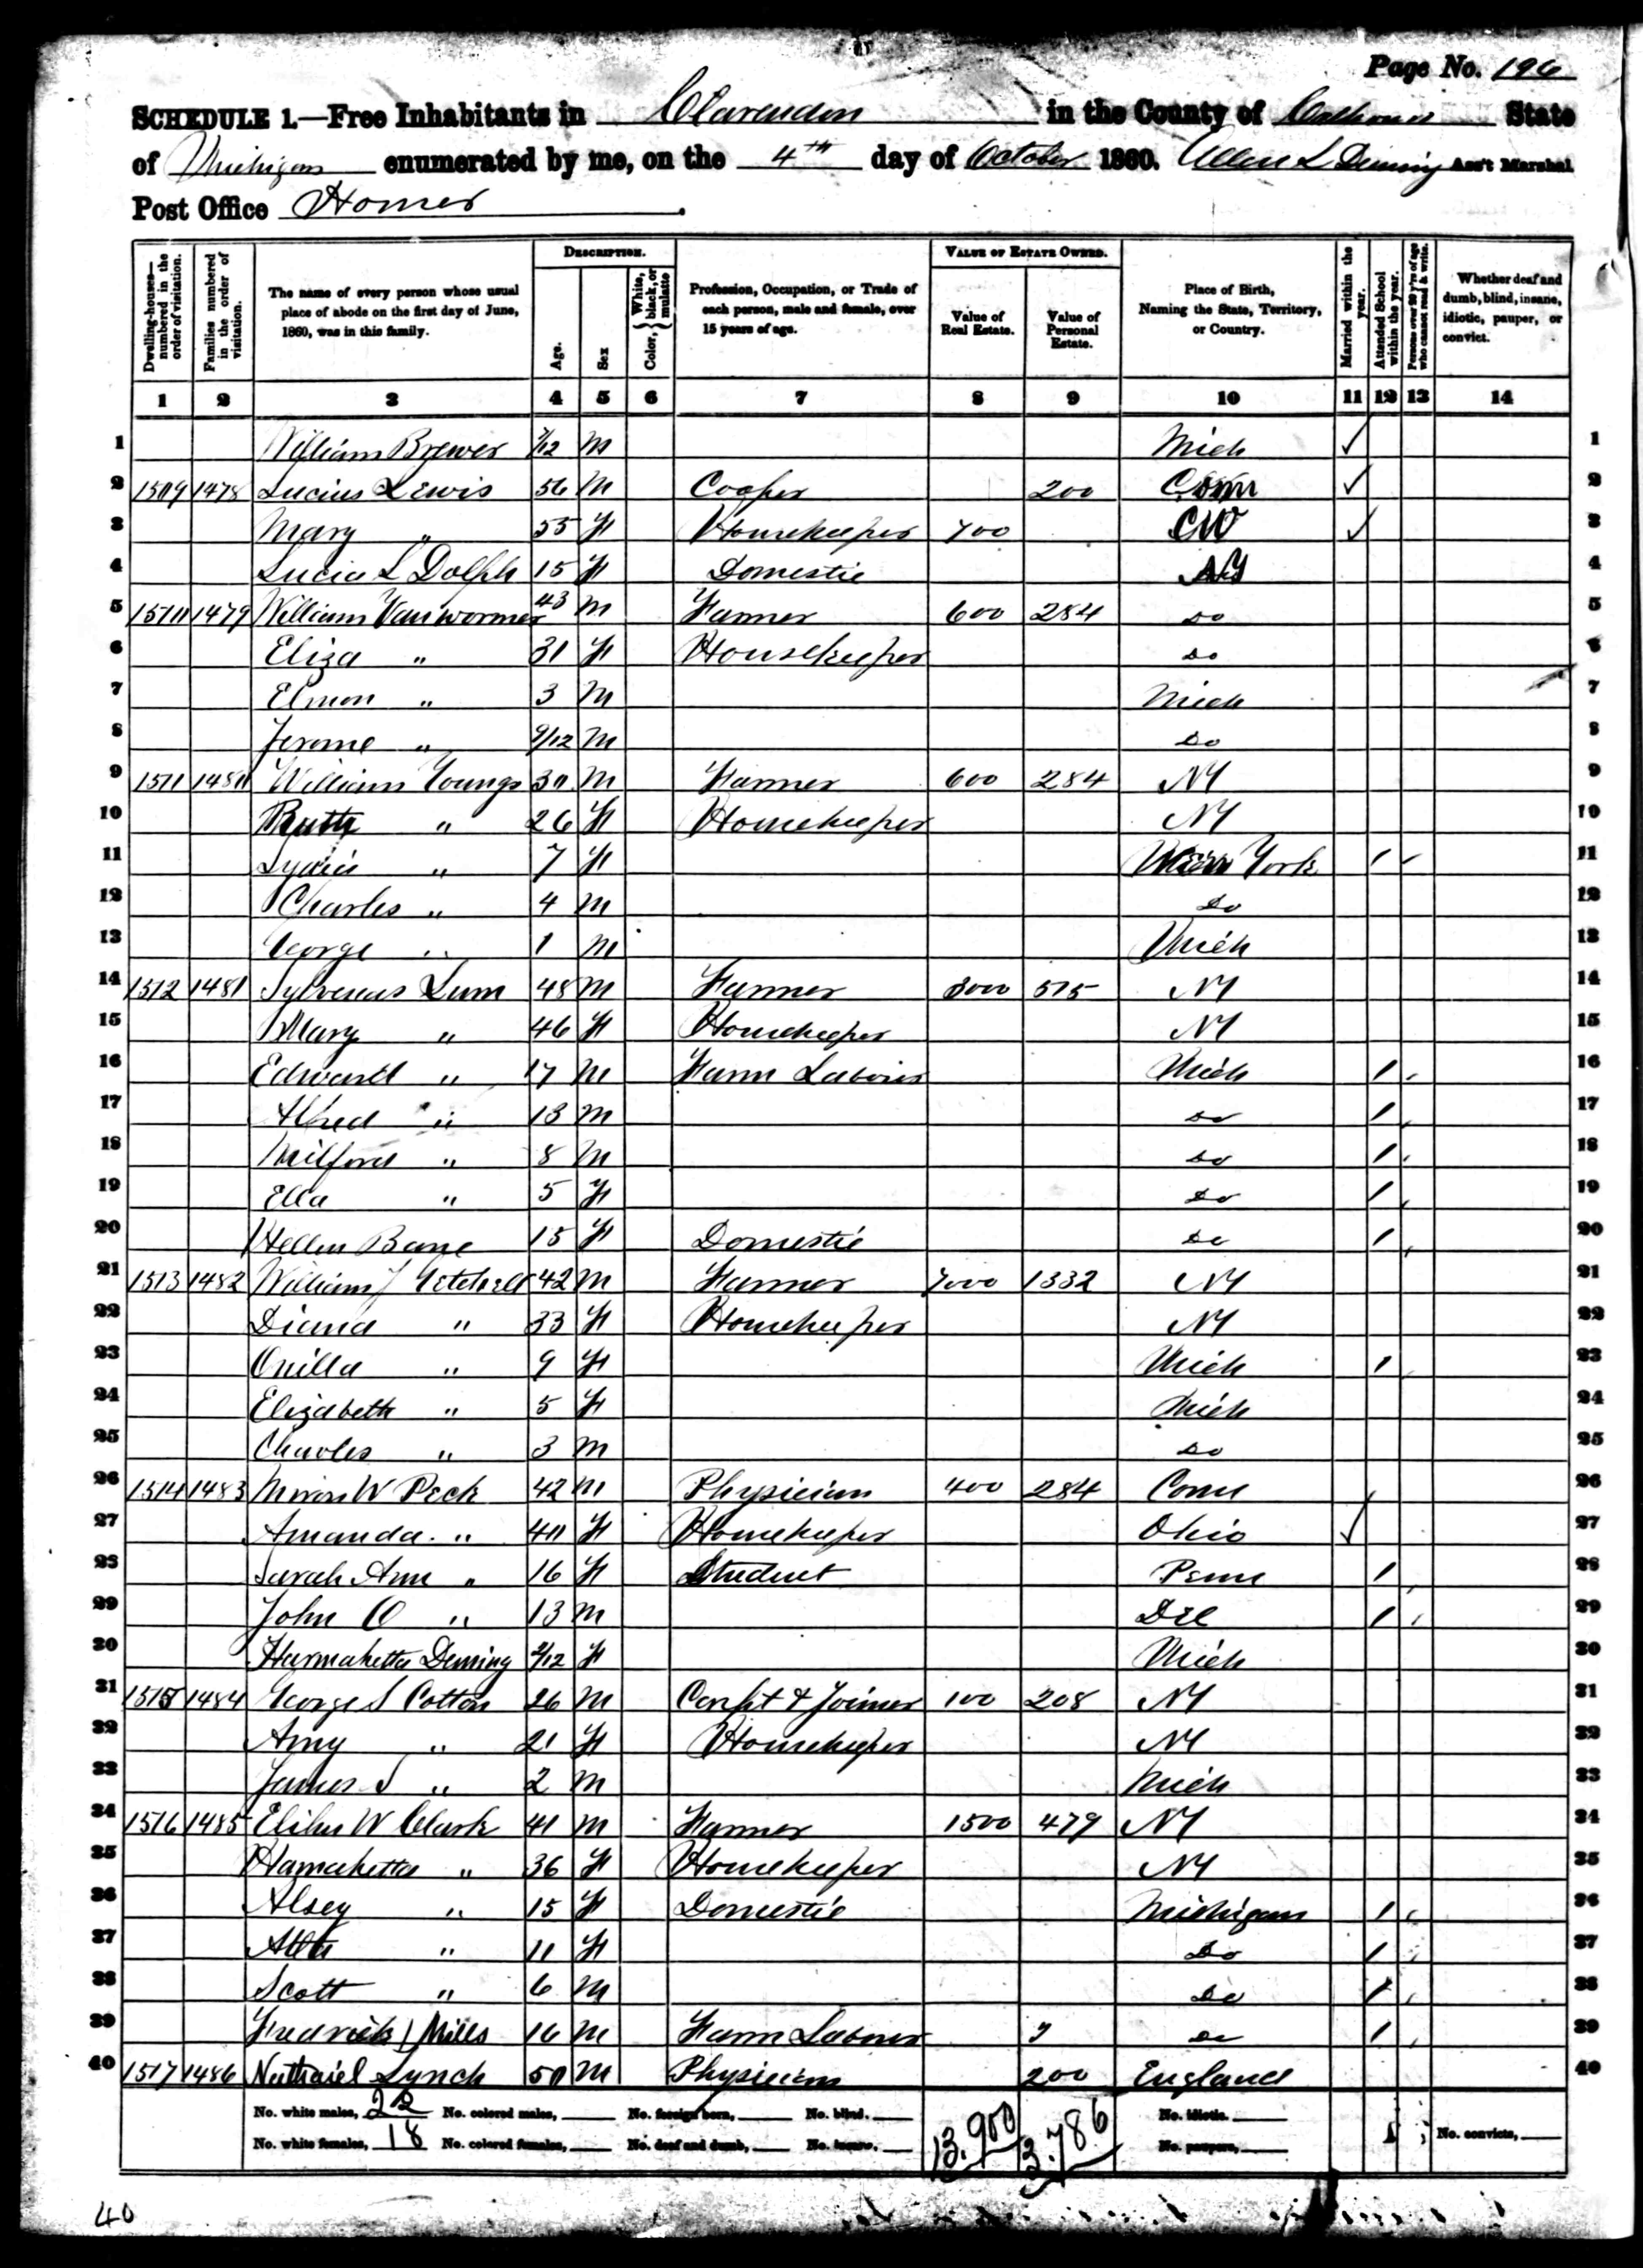 Page No. 196
SCHEDULE 1.—Free Inhabitants in Clarendon in the County of Calhoun State
of Michigan enumerated by me, on the 4th day of October 1860. Allen L Deming Ass't Marshal.
Post Office Homer.
Dwelling-houses—numbered in the order of visitation.
Families numbered in the order of visitation.
The name of every person whose usual place of abode on the first day of June, 1860, was in this family.
DESCRIPTION.
Age.
Sex
Color, White, black, or mulatto
Profession, Occupation, or Trade of each person, male and female, over 15 years of age.
VALUE OF ESTATE OWNED.
Value of Real Estate.
Value of Personal Estate.
Place of Birth, Naming the State, Territory, or Country.
Married within the year.
Attended School within the year.
Persons over 20 y'rs of age who cannot read & write.
Whether deaf and dumb, blind, insane, idiotic, pauper, or convict.
1 2 3 4 5 6 7 8 9 10 11 12 13 14
1 William Brewer 7/12 M Mich ✓ 1
2 1509 1478 Lucius Lewis 56 M Cooper 200 Conn ✓ 2
3 Mary " 55 F Housekeeper 700 CW ✓ 3
4 Lucia L Dolph 15 F Domestic NY 4
5 1510 1479 William Vanwormer 43 M Farmer 600 284 Do 5
6 Eliza " 31 F Housekeeper Do 6
7 Elmon " 3 M Mich 7
8 Jerome " 9/12 M Do 8
9 1511 1480 William Youngs 30 M Farmer 600 284 NY 9
10 Ruth " 26 F Housekeeper NY 10
11 Lydia " 7 F New York / 11
12 Charles " 4 M Do 12
13 George " 1 M Mich 13
14 1512 1481 Sylvenus Lum 48 M Farmer 3000 515 NY 14
15 Mary " 46 F Housekeeper NY 15
16 Edward " 17 M Farm Laborer Mich / 16
17 Alfred " 13 M Do / 17
18 Milford " 8 M Do / 18
19 Ella " 5 F Do / 19
20 Hellen Bane 15 F Domestic Do / 20
21 1513 1482 William J Getchell 42 M Farmer 7000 1332 NY 21
22 Diana " 33 F Housekeeper NY 22
23 Orilla " 9 F Mich / 23
24 Elizabeth " 5 F Mich 24
25 Charles " 3 M Do 25
26 1514 1483 W Peck 42 M Physician 400 284 Conn 26
27 Amanda " 40 F Housekeeper Ohio ✓ 27
28 Sarah Ann " 16 F Student Penn / 28
29 John O " 13 M Del / 29
30 Harmahetta Deming 2/12 F Mich 30
31 1515 1484 George S Cotton 26 M Carpt & Joiner 100 208 NY 31
32 Amy " 21 F Housekeeper NY 32
33 James S " 2 M Mich 33
34 1516 1485 Elihu W Clark 41 M Farmer 1500 479 NY 34
35 Hamahetta " 36 F Housekeeper NY 35
36 Alsey " 15 F Domestic Michigan / 36
37 " 11 F Do / 37
38 Scott " 6 M Do / 38
39 Fredrick Mills 16 M Farm Laborer Do / 39
40 1517 1486 Nathaiel Lynch 50 M Physician 200 England 40
No. white males, 22 No. colored males, No. foreign born, No. blind. 13.900 3.786 No. idiotic.
No. white females, 18 No. colored females, No. deaf and dumb, No. insane, No. paupers, No. convicts,
40